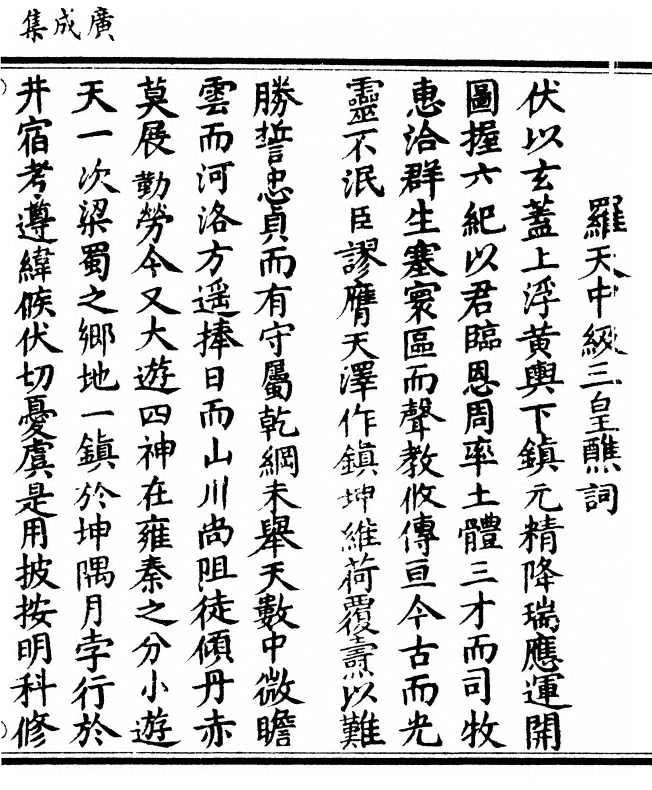 廣成集
羅天中級三皇醮詞
伏以玄蓋上浮黃輿下鎮元精降瑞應運開
圖握六紀以君臨恩周率土體三才而司牧
惠洽群生塞寰區而聲教攸傳亘今古而光
靈不泯臣謬膺天澤作鎮坤維荷覆燾以難
勝誓忠貞而有守屬乾綱未舉天數中微瞻
雲而河洛方遥捧日而山川尚阻徒傾丹赤
莫展勤勞今又大遊四神在雍秦之分小遊
天一次梁蜀之鄉地一鎮於坤隅月孛行於
井宿考遵緯候伏切憂虞是用披按明科修